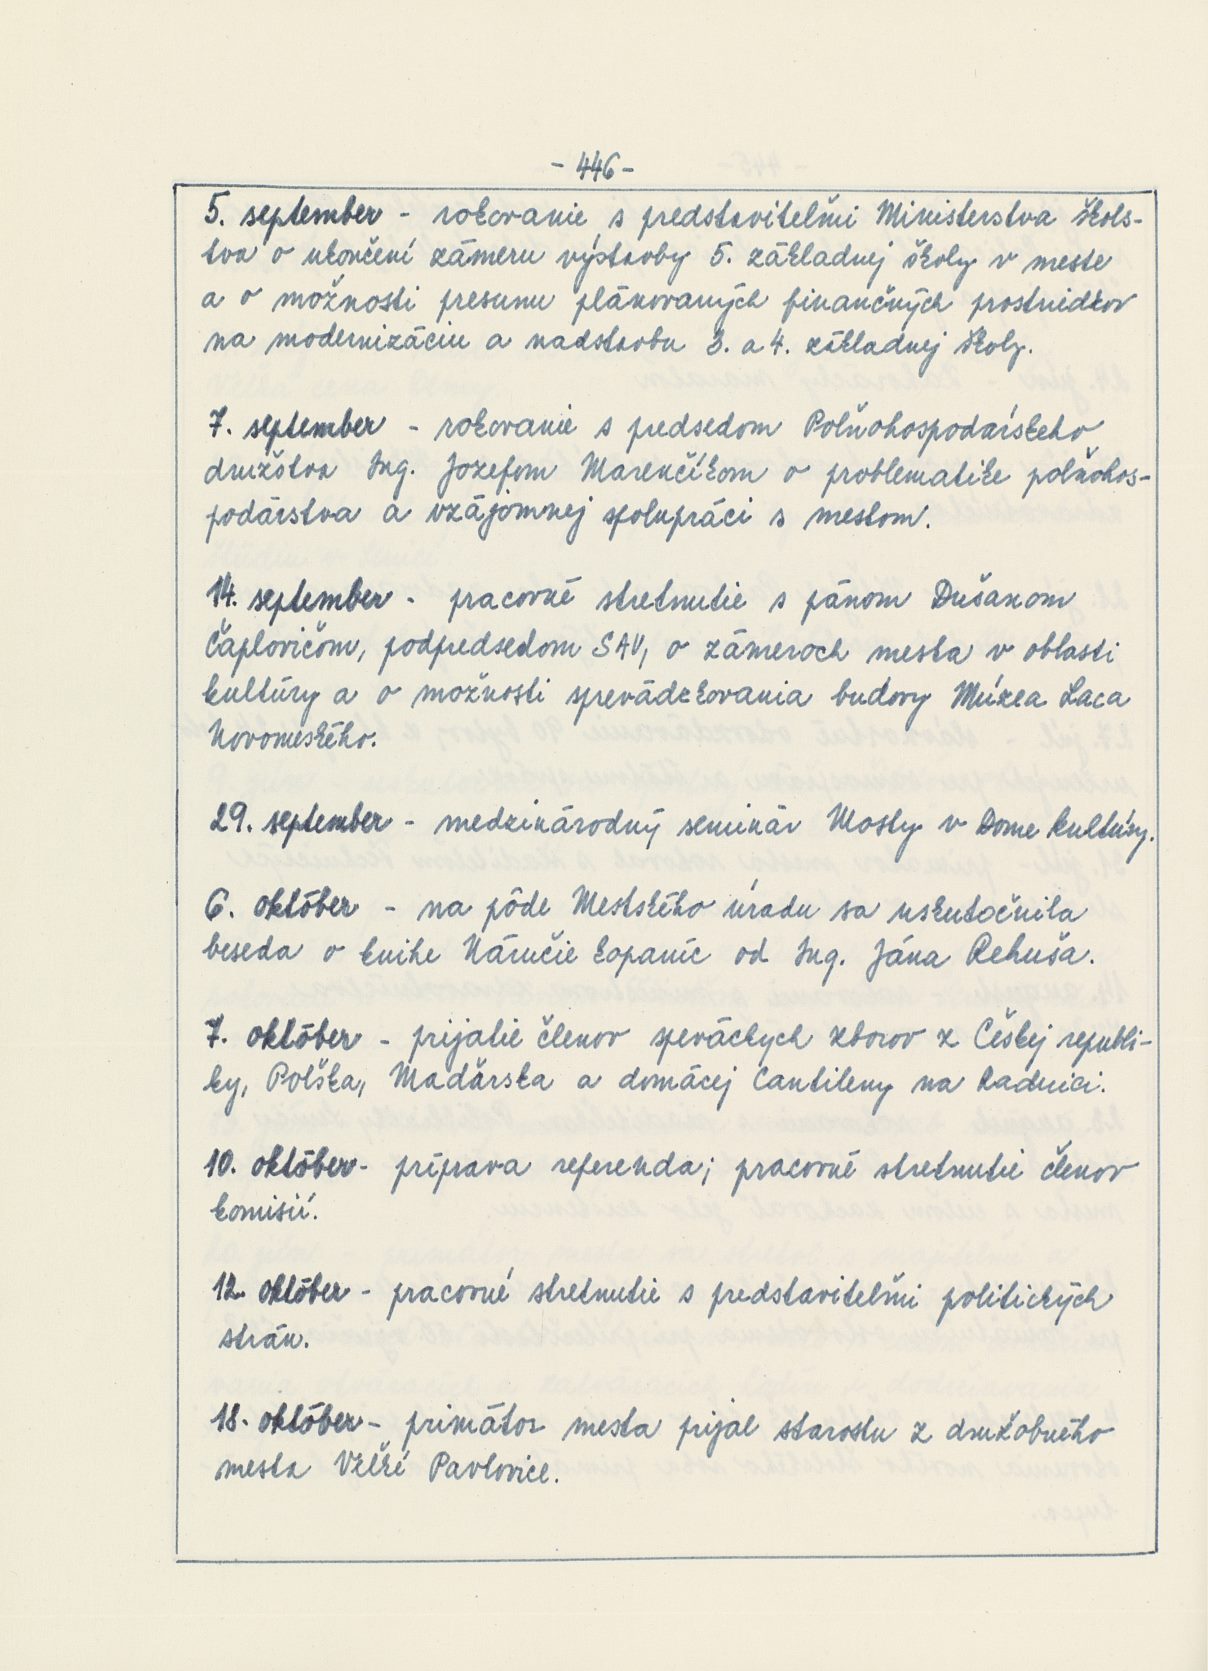 - 446 -
5. september - rokovanie s predstaviteľmi Ministerstva škols-
tva o ukončení zámeru výstavby 5. základnej školy v meste
a o možnosti presunu plánovaných finančných prostriedkov
na modernizáciu a nadstavbu 3. a 4. základnej školy.
7. september - rokovanie s predsedom Poľnohospodárskeho
družstva Ing. Jozefom Marenčíkom o problematike poľnohos-
podárstva a vzájomnej spolupráci s mestom.
14. september - pracovné stretnutie s pánom Dušanom
Čaplovičom, podpredsedom SAV, o zámeroch mesta v oblasti
kultúry a o možnosti sprevádzkovania budovy Múzea Laca
Novomeského.
29. september - medzinárodný seminár Mosty v Dome kultúry.
6. október - na pôde Mestského úradu sa uskutočnila
beseda o knihe Náručie kopaníc od Ing. Jána Rehuša.
7. október - prijatie členov speváckych zborov z Českej republi-
ky, Poľska, Maďarska a domácej Cantileny na Radnici.
10. október - príprava referenda; pracovné stretnutie členov
komisií.
12. október - pracovné stretnutie s predstaviteľmi politických
strán.
18. október - primátor mesta prijal starostu z družobného
mesta Veľké Pavlovice.